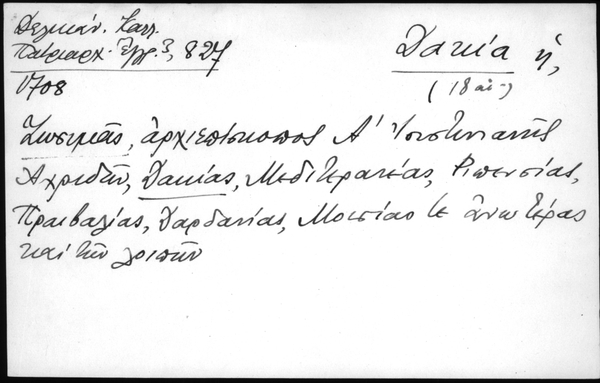 Δελικάν. Καλλ.
Πατριαρχ. Ἔγγρ. 3, 827
1708
Δακία ἡ,
(18 αἰ.)
Ζωσιμᾶς, ἀρχιεπίσκοπος Α' Ἰουστινιανῆς
Ἀχριδῶν, Δακίας, Μεδιτερανέας, Ριπενσίας,
Πραιβαλίας, Δαρδανίας, Μοισίας τε ἀνωτέρας
καὶ τῶν λοιπῶν